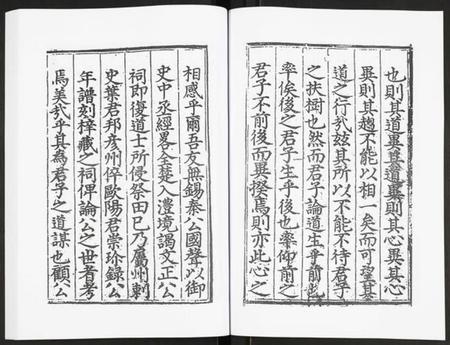 也則其道異其道異則其心異其心
異則其趨不能以相一矣而可望其
道之行哉玆其所以不能不待君子
之扶樹也然而君子論道生乎前也
率俟後之君子生乎後也率仰前之
君子不前後而異揆焉則亦此心之
相感乎爾吾友無錫秦公國聲以御
史中丞經畧入全蓺入澧境謁文正公
祠即復道士所侵祭田已乃屬州刺
史葉君邦彥州倅歐陽君崇珍錄公
年譜刻梓藏之祠俾論公之世者考
焉美哉乎其為君子之道謀也顧公